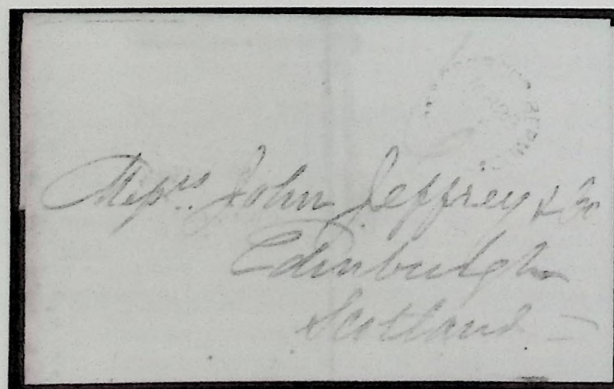 Messrs. John Jeffrey & Co
Edinburgh
Scotland